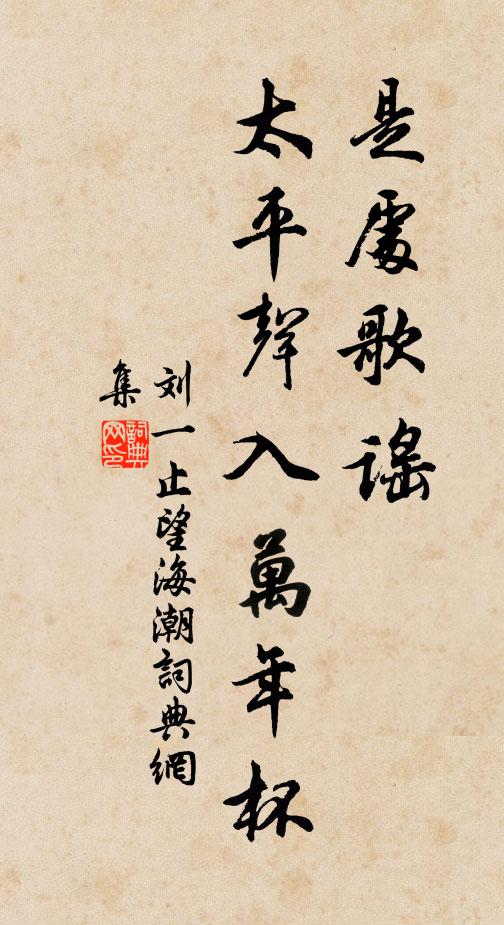 是處歌謡
太平聲入萬年杯
刘一止望海潮詞典網
集
詞典
网印